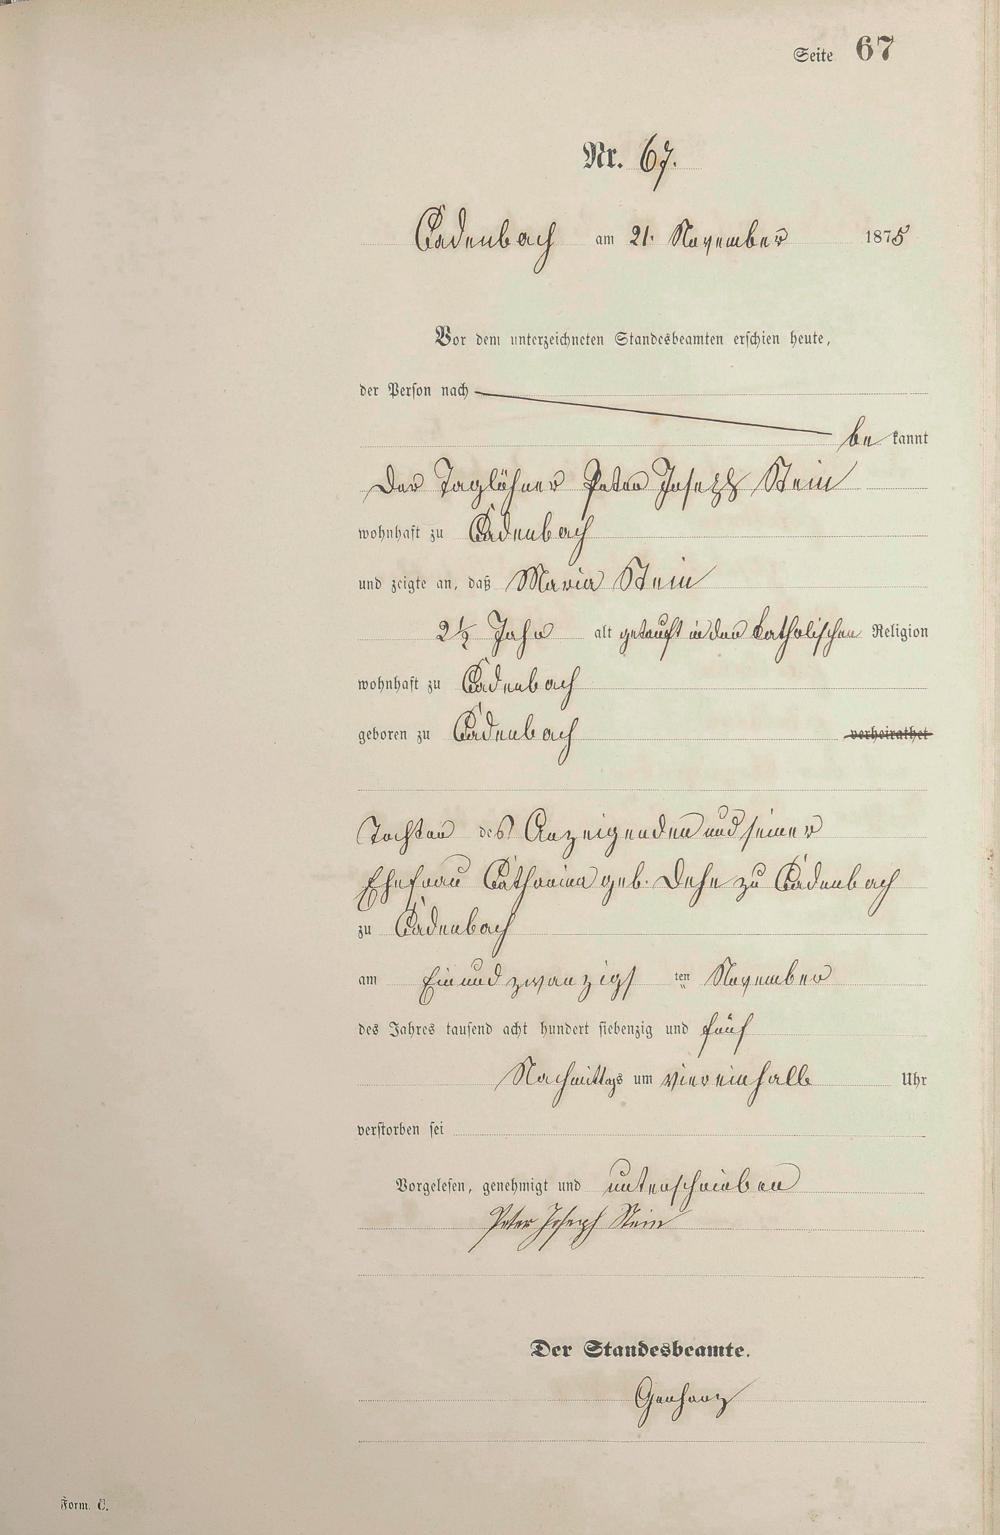 Seite 67
Nr. 67.
Cadenbach am 21. November 1875
Vor dem unterzeichneten Standesbeamten erschien heute,
der Person nach
be kannt
Der Taglöhner Peter Joseph Stein
wohnhaft zu Cadenbach
und zeigte an, daß Maria Stein
2½ Jahr alt getauft in der katholischen Religion
wohnhaft zu Cadenbach
geboren zu Cadenbach verheirathet
Tochter des Anzeigenden und seiner
Ehefrau Catharina geb. Dehe zu Cadenbach
zu Cadenbach
am Ein und zwanzigs ten November
des Jahres tausend acht hundert siebenzig und fünf
Nachmittags um viereinhalb Uhr
verstorben sei
Vorgelesen, genehmigt und unterschrieben
Peter Joseph Stein
Der Standesbeamte.
Form. C.